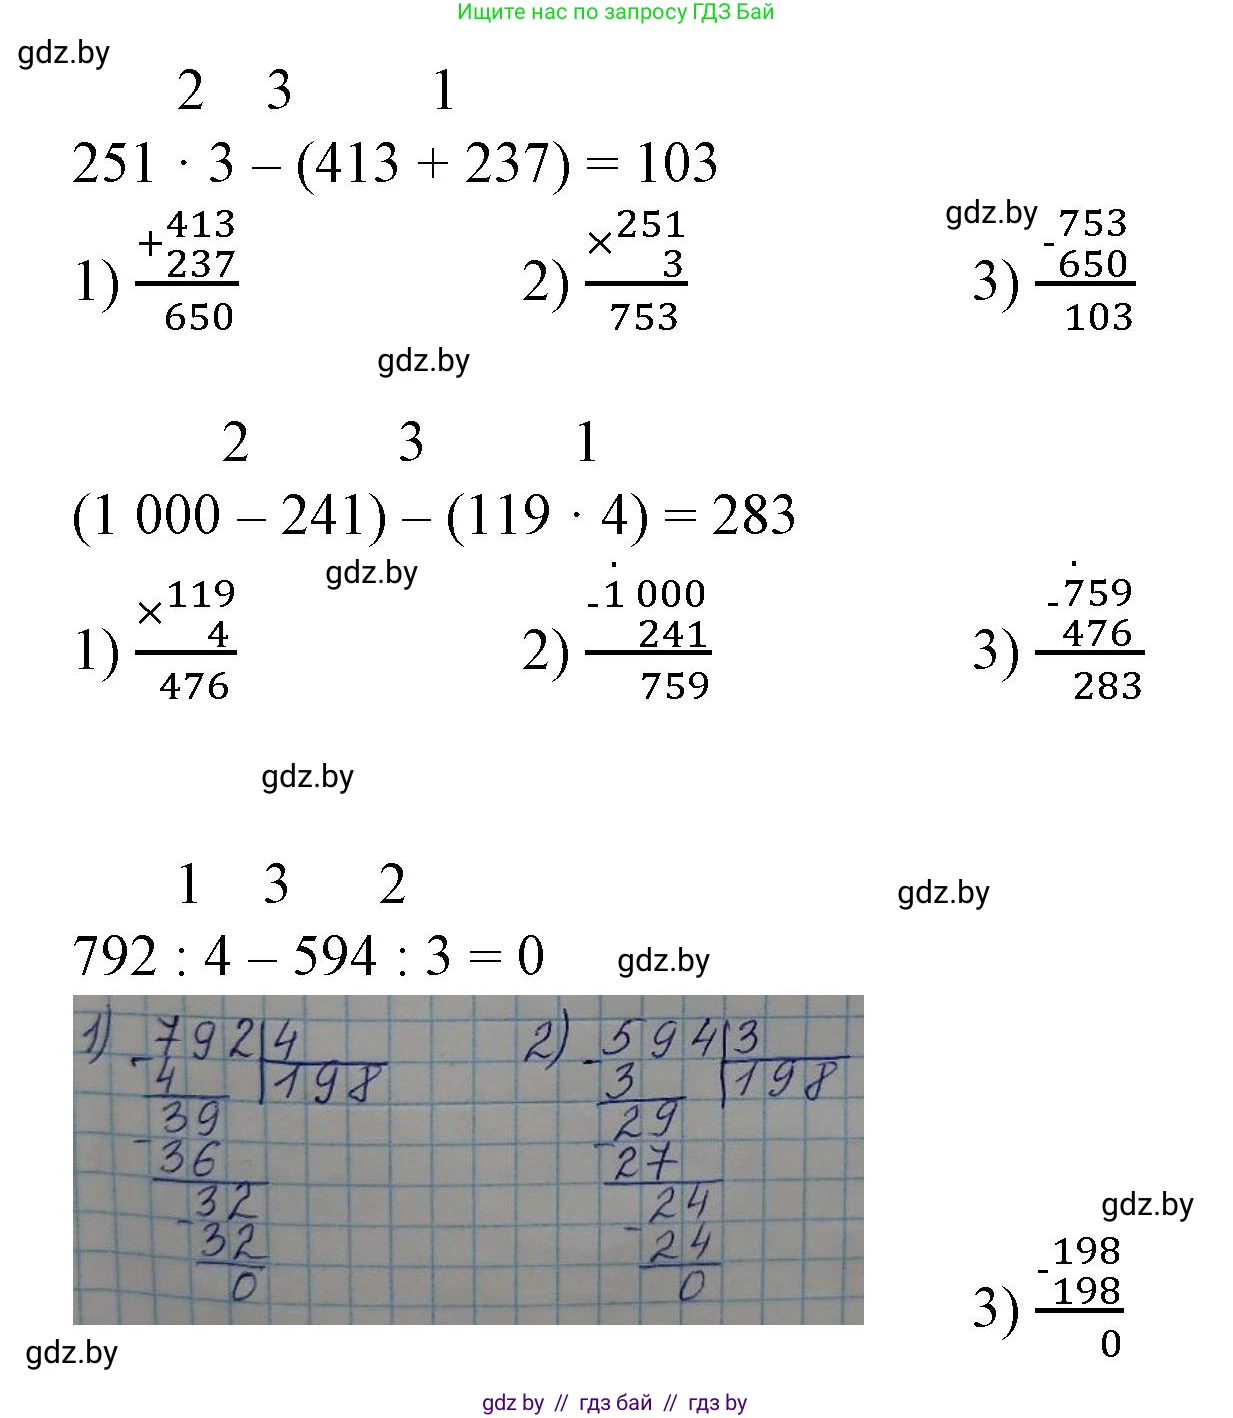 Ищите нас по запросу ГДЗ Бай
gdz.by
2 3 1
251 · 3 – (413 + 237) = 103
gdz.by
1) +413
237
650
2) ×251
3
753
3) -753
650
103
gdz.by
2 3 1
(1 000 – 241) – (119 · 4) = 283
gdz.by
1) ×119
4
476
2) -1 000
241
759
3) -759
476
283
gdz.by
1 3 2
gdz.by
792 : 4 – 594 : 3 = 0
gdz.by
1) -792|4
4 |198
39
-36
32
-32
0
2) -594|3
3 |198
29
-27
24
-24
0
gdz.by
3) -198
198
0
gdz.by
gdz.by // гдз бай // гдз by